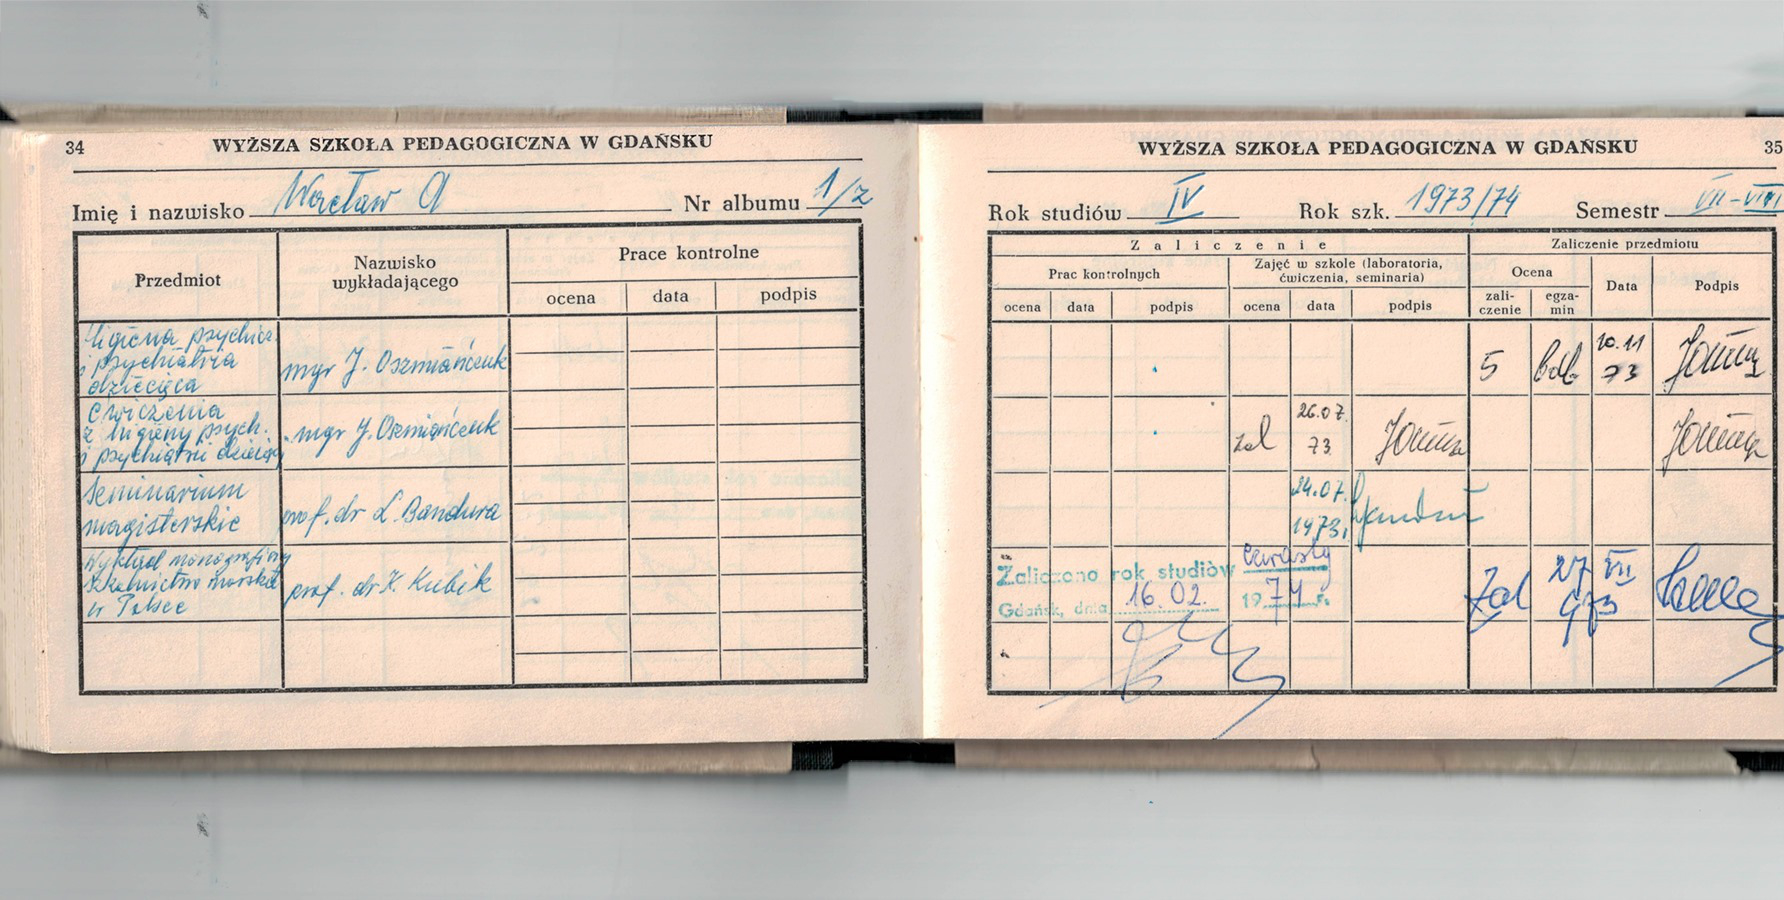 34
WYŻSZA SZKOŁA PEDAGOGICZNA W GDAŃSKU
Imię i nazwisko Wacław A Nr albumu 1/z
Przedmiot
Nazwisko
wykładającego
Prace kontrolne
ocena data podpis
higiena psychicz.
i psychiatria
dziecięca
mgr J. Oszmiańczuk
ćwiczenia
z higieny psych.
i psychiatrii dziecię
mgr J. Oszmiańczuk
Seminarium
magisterskie
prof. dr L. Bandura
Wykład monograficzny
szkolnictwo morskie
w Polsce
prof. dr K. Kubik
WYŻSZA SZKOŁA PEDAGOGICZNA W GDAŃSKU
35
Rok studiów IV Rok szk. 1973/74 Semestr VII-VIII
Zaliczenie
Zaliczenie przedmiotu
Prac kontrolnych
Zajęć w szkole (laboratoria,
ćwiczenia, seminaria)
Ocena
Data
Podpis
ocena data podpis
ocena data podpis
zali-
czenie
egza-
min
5 bdb 10.11
73
zal 26.07.
73
24.07.
1973.
Zaliczono rok studiów czwarty
Gdańsk, dnia 16.02. 1974 r.
Zal 27 VII
973